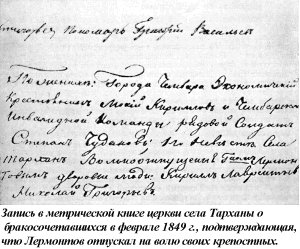 Пономарь Григорий Васильев
По женихе: Города Чембара Экономический
Крестьянин Мокей Киримов и Чембарской
Инвалидной Команды рядовой Солдат
Степан Чудаков; По Невесте Села
Тархан Вольноотпущенный Гасп.
дворовые люди: Кирилл Лаврентьев
Николай Григорьев.
Запись в метрической книге церкви села Тарханы о
бракосочетавшихся в феврале 1849 г., подтверждающая,
что Лермонтов отпускал на волю своих крепостных.